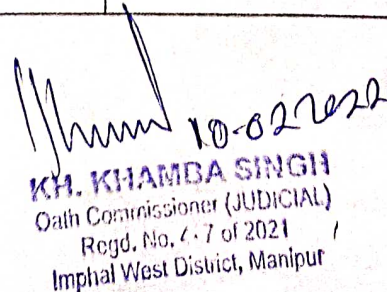 10-02-2022
KH. KHAMBA SINGH
Oath Commissioner (JUDICIAL)
Regd. No. 47 of 2021
Imphal West District, Manipur